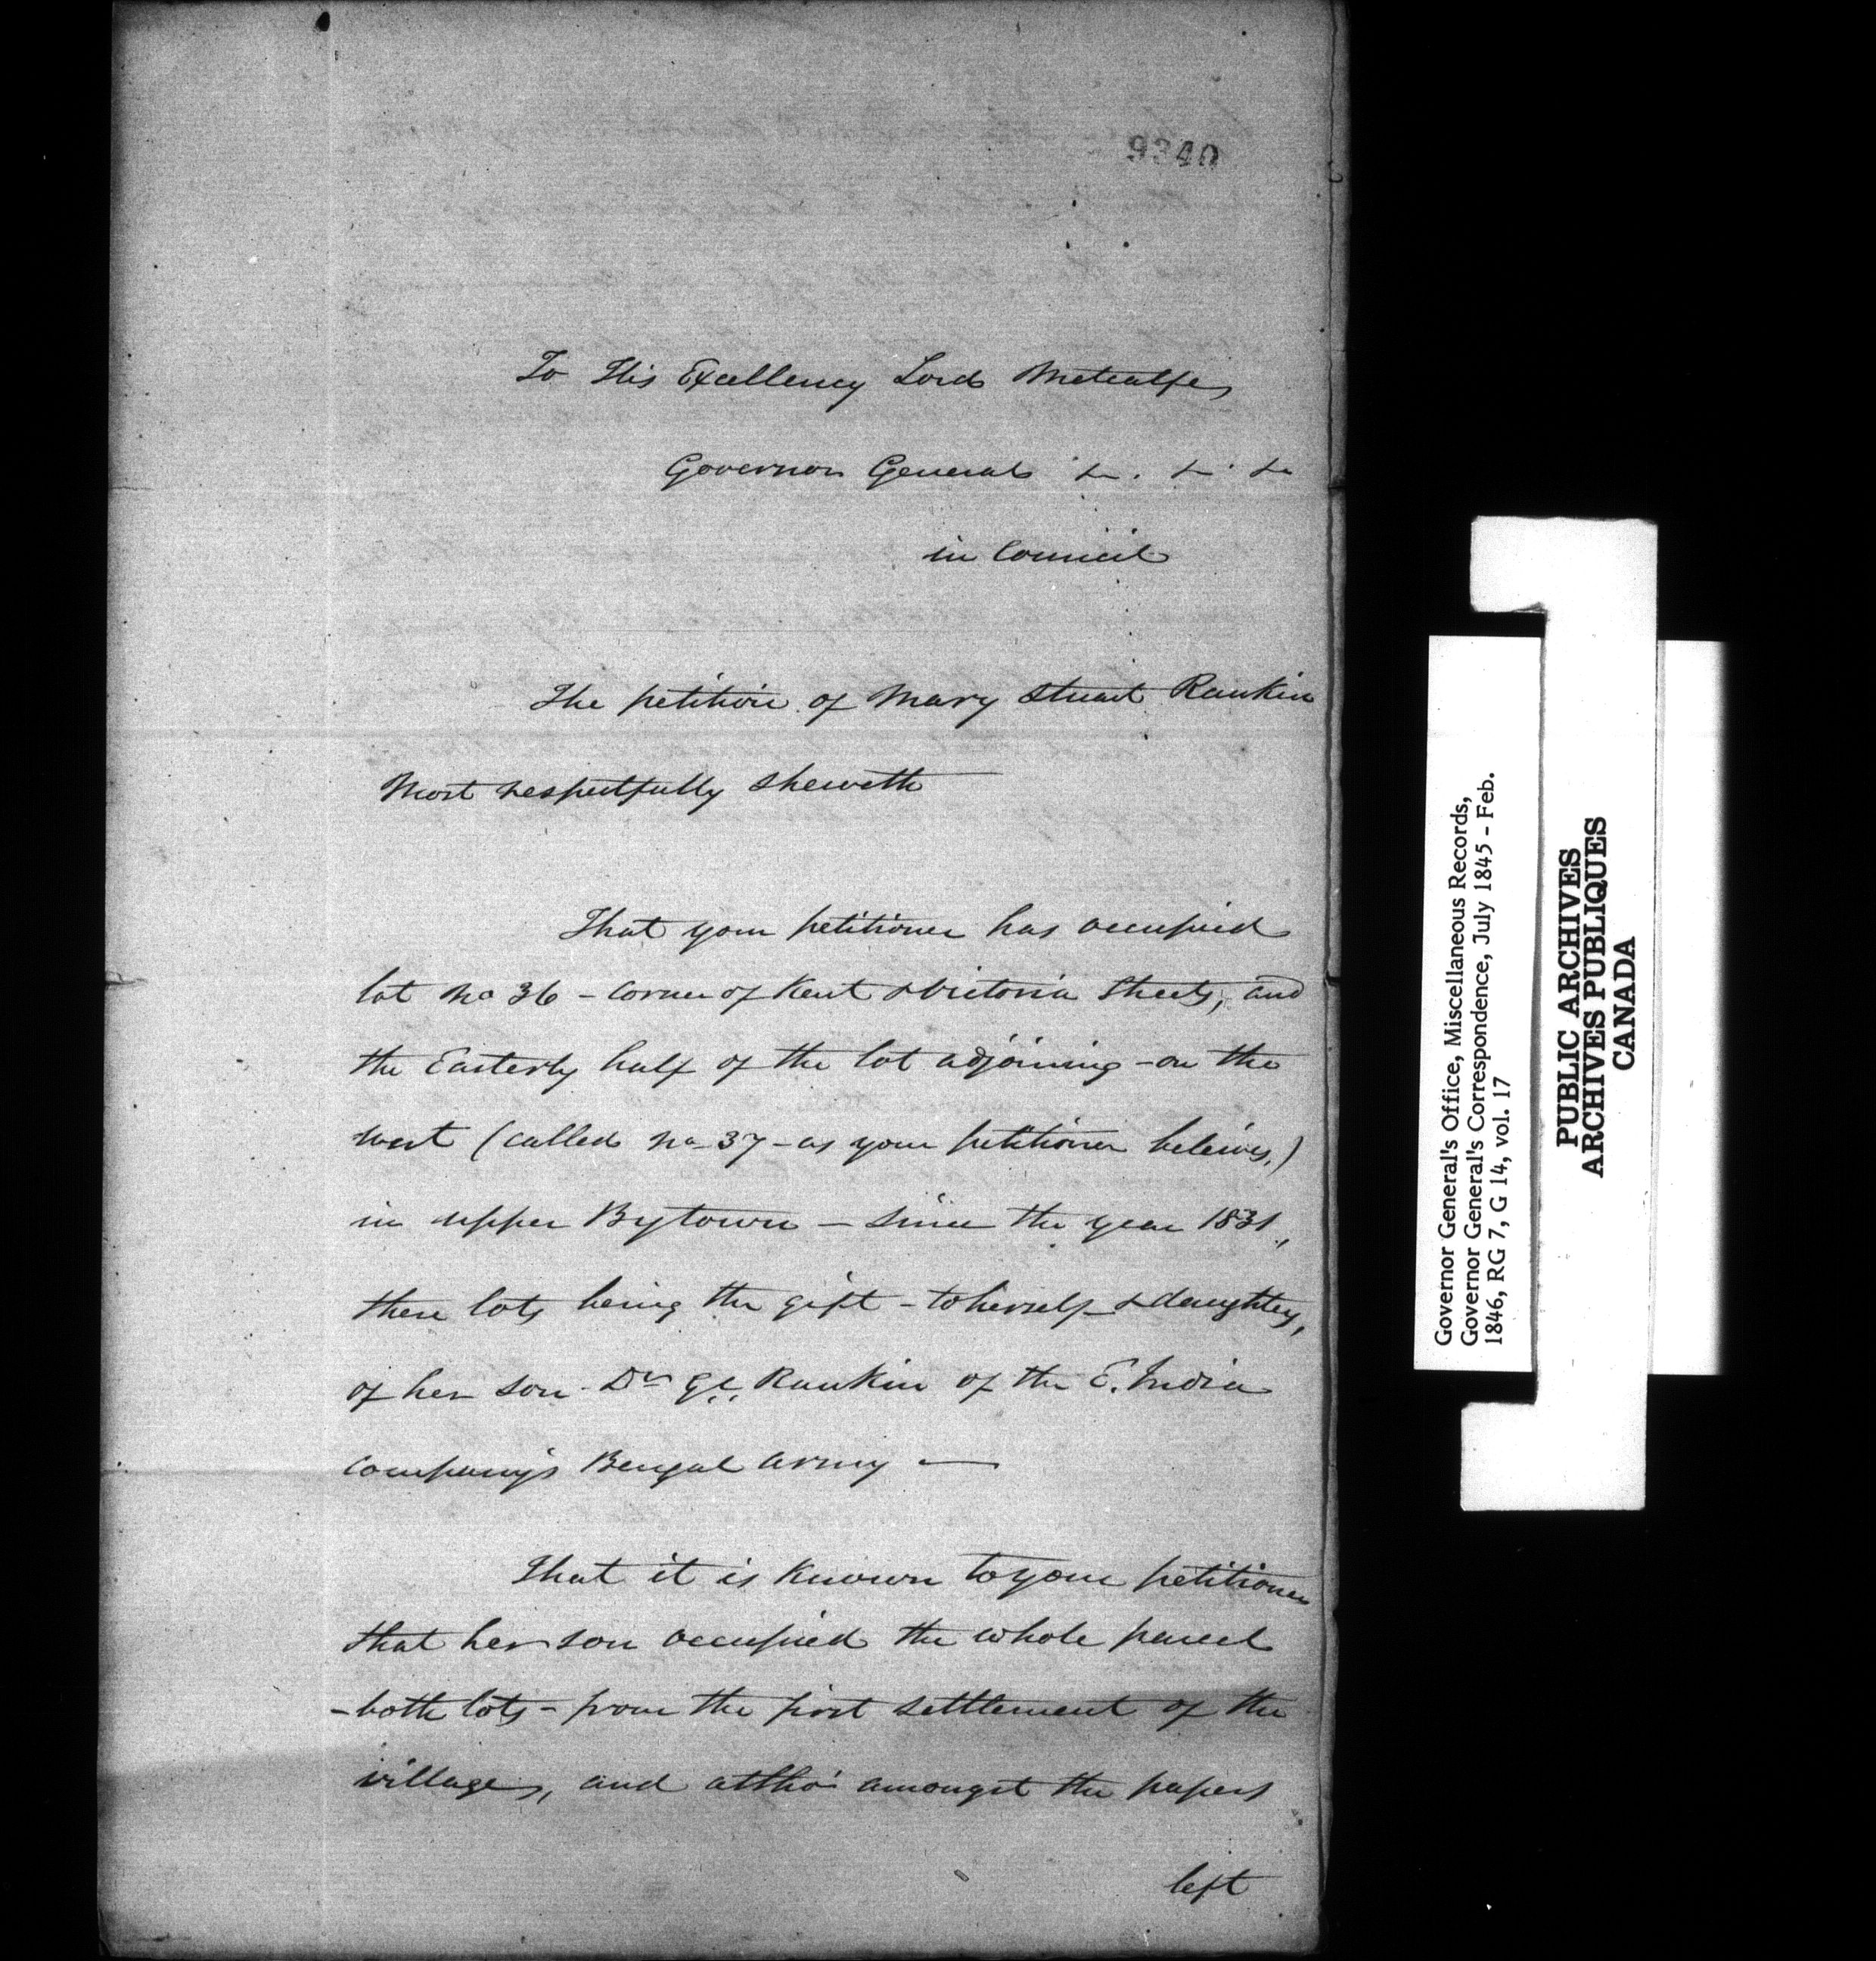 9340
To His Excellency Lord Metcalfe,
Governor General &c. &c. &c
in Council
The petition of Mary Stuart Rankin
Most respectfully sheweth
That your petitioner has occupied
lot No 36 – corner of Kent & Victoria Streets, and
the Easterly half of the lot adjoining – on the
west (called No 37 – as your petitioner beleives,)
in upper Bytown – since the year 1831,
these lots being the gift – to herself & daughters,
of her son Dr Ge. Rankin of the E. India
Company's Bengal Army —
That it is known to your petitioner
that her son occupied the whole parcel
– both lots – from the first settlement of the
village, and altho' amongst the papers
left
Governor General's Office, Miscellaneous Records,
Governor General's Correspondence, July 1845 - Feb.
1846, RG 7, G 14, vol. 17
PUBLIC ARCHIVES
ARCHIVES PUBLIQUES
CANADA